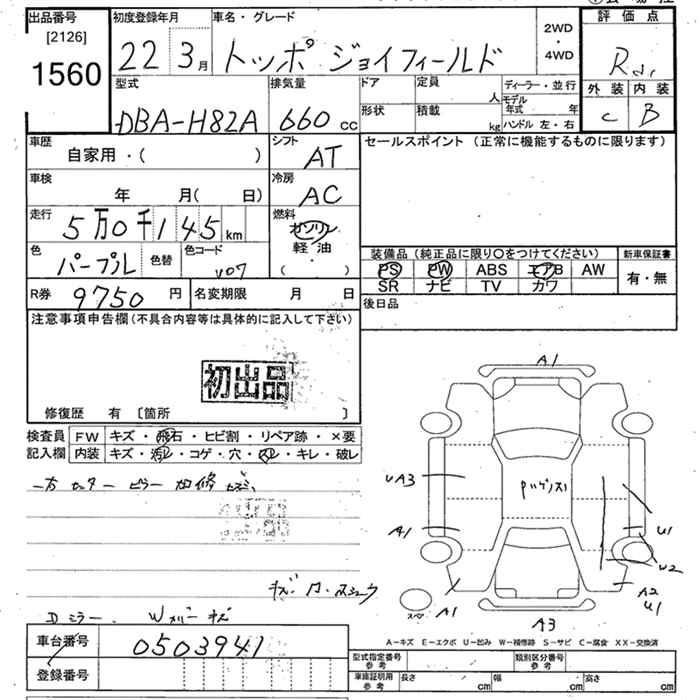 出品番号
[2126]
1560
初度登録年月
22 3月
車名・グレード
トッポ ジョイフィールド
2WD
・
4WD
評価点
R
外装 内装
C B
型式
DBA-H82A
排気量
660 cc
ドア
形状
定員
人
積載
kg
ディーラー・並行
モデル
年式 年
ハンドル 左・右
車歴
自家用・( )
シフト
AT
セールスポイント (正常に機能するものに限ります)
車検
年 月( 日)
冷房
AC
走行
5万0千145km
燃料
ガソリン
軽・油
( )
色
パープル
色替
色コード
V07
装備品 (純正品に限り○をつけてください)
新車保証書
PS PW ABS エアB AW
SR ナビ TV カワ
有・無
R券 9750 円
名変期限 月 日
後日品
注意事項申告欄 (不具合内容等は具体的に記入して下さい)
初出品
修復歴 有 [箇所 ]
検査員
記入欄
FW キズ・飛石・ヒビ割・リペア跡・×要
内装 キズ・汚レ・コゲ・穴・スレ・キレ・破レ
Dミラー. Wメバーキズ
A1
UA3
A1
A1
U1
W2
A2
U1
A3
スペア
A-キズ E-エクボ U-凹み W-補修跡 S-サビ C-腐食 XX-交換済
車台番号 0503941
登録番号
型式指定番号
参考
類別区分番号
参考
車庫証明用
参考
長さ cm 幅 cm 高さ cm